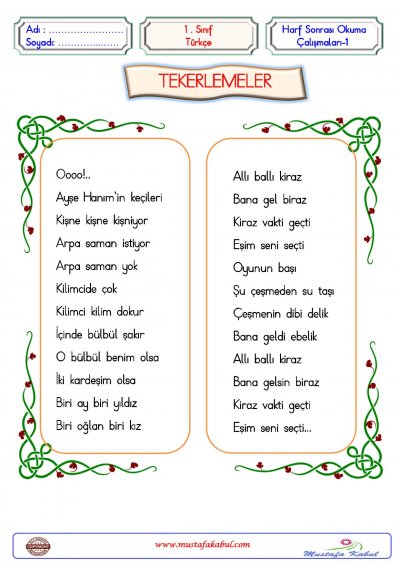 Adı : ……………………
Soyadı: ……………………
1. Sınıf
Türkçe
Harf Sonrası Okuma
Çalışmaları-1
TEKERLEMELER
Oooo!..
Ayşe Hanım'in keçileri
Kişne kişne kişniyor
Arpa saman istiyor
Arpa saman yok
Kilimcide çok
Kilimci kilim dokur
İçinde bülbül şakır
O bülbül benim olsa
İki kardeşim olsa
Biri ay biri yıldız
Biri oğlan biri kız
Allı ballı kiraz
Bana gel biraz
Kiraz vakti geçti
Eşim seni seçti
Oyunun başı
Şu çeşmeden su taşı
Çeşmenin dibi delik
Bana geldi ebelik
Allı ballı kiraz
Bana gelsin biraz
Kiraz vakti geçti
Eşim seni seçti...
www.mustafakabul.com
Mustafa Kabul